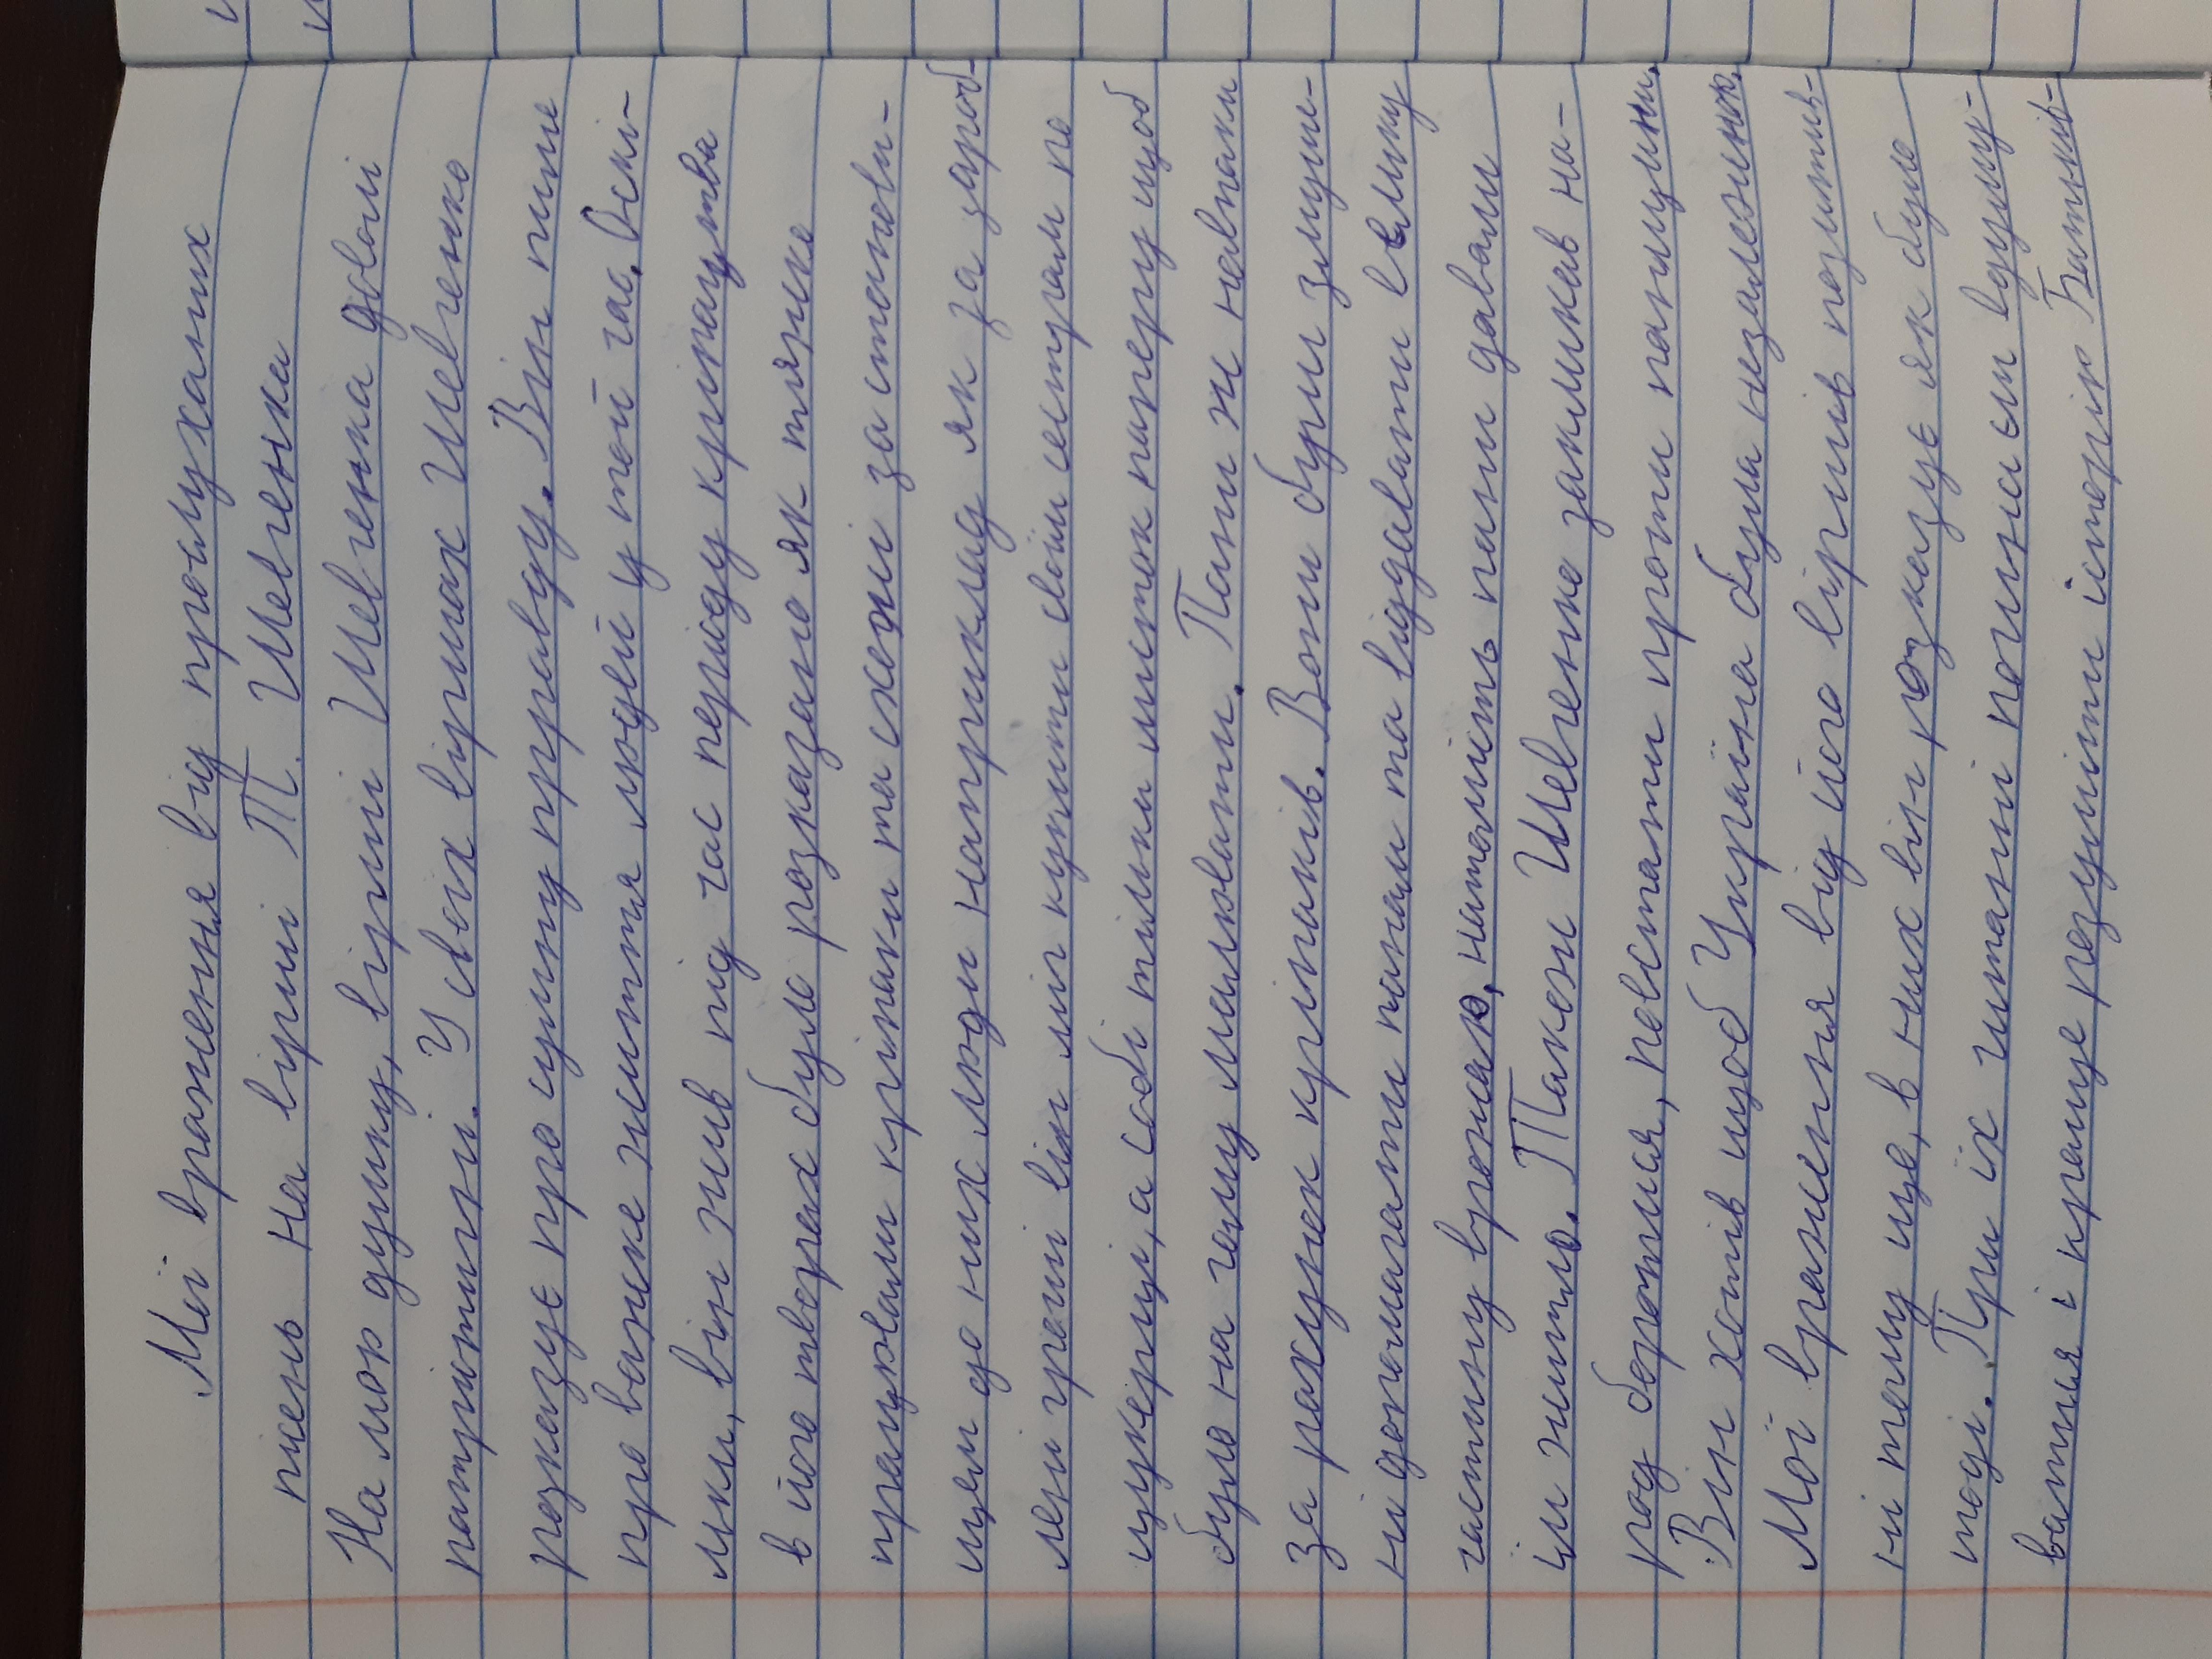 Мої враження від прослуханих
пісень на вірші Т. Шевченка
На мою думку, вірші Шевченка доволі
патріотичні. У своїх віршах Шевченко
розказує про сумну правду. Він пише
про важке життя людей у той час. Оскі-
льки, він жив під час періоду кріпацтва
в його творах було розказано як тяжко
працювали кріпаки та схожі за станови-
щем до них люди наприклад як за зароб-
лені гроші він міг купити своїм сестрам по
цукерці, а собі тільки листок паперу щоб
було на чому малювати. Пани ж навпаки
за рахунок кріпаків. Вони були змуше-
ні допомагати панам та віддавати велику
частину врожаю, натомість пани давали
їм житло. Також Шевченко закликав на-
род боротися, повстати проти панщини.
Він хотів щоб Україна була незалежною.
Мої враження від його віршів позитив-
ні тому що, в них він розказує як було
тоді. При їх читанні починаєш вдуму-
ватися і краще розуміти історію Батьків-